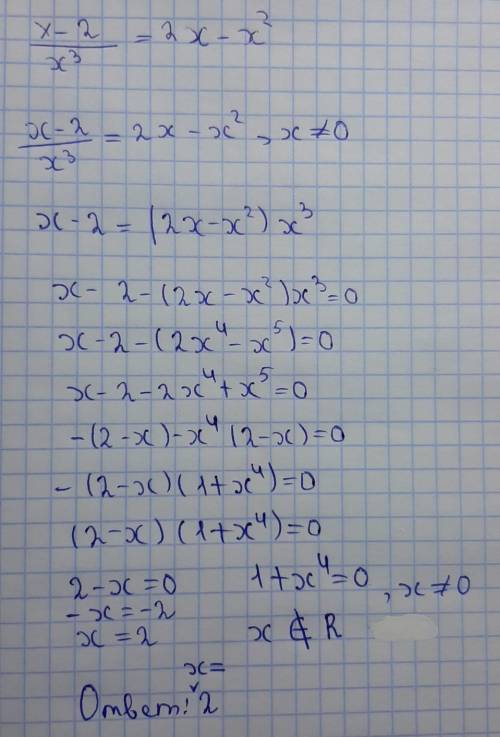 x-2/x³ = 2x - x²
x-2/x³ = 2x - x², x ≠ 0
x - 2 = (2x - x²) x³
x - 2 - (2x - x²) x³ = 0
x - 2 - (2x⁴ - x⁵) = 0
x - 2 - 2x⁴ + x⁵ = 0
-(2 - x) - x⁴ (2 - x) = 0
- (2 - x) (1 + x⁴) = 0
(2 - x) (1 + x⁴) = 0
2 - x = 0 1 + x⁴ = 0, x ≠ 0
- x = -2
x = 2 x ∉ R
x =
Ответ: 2